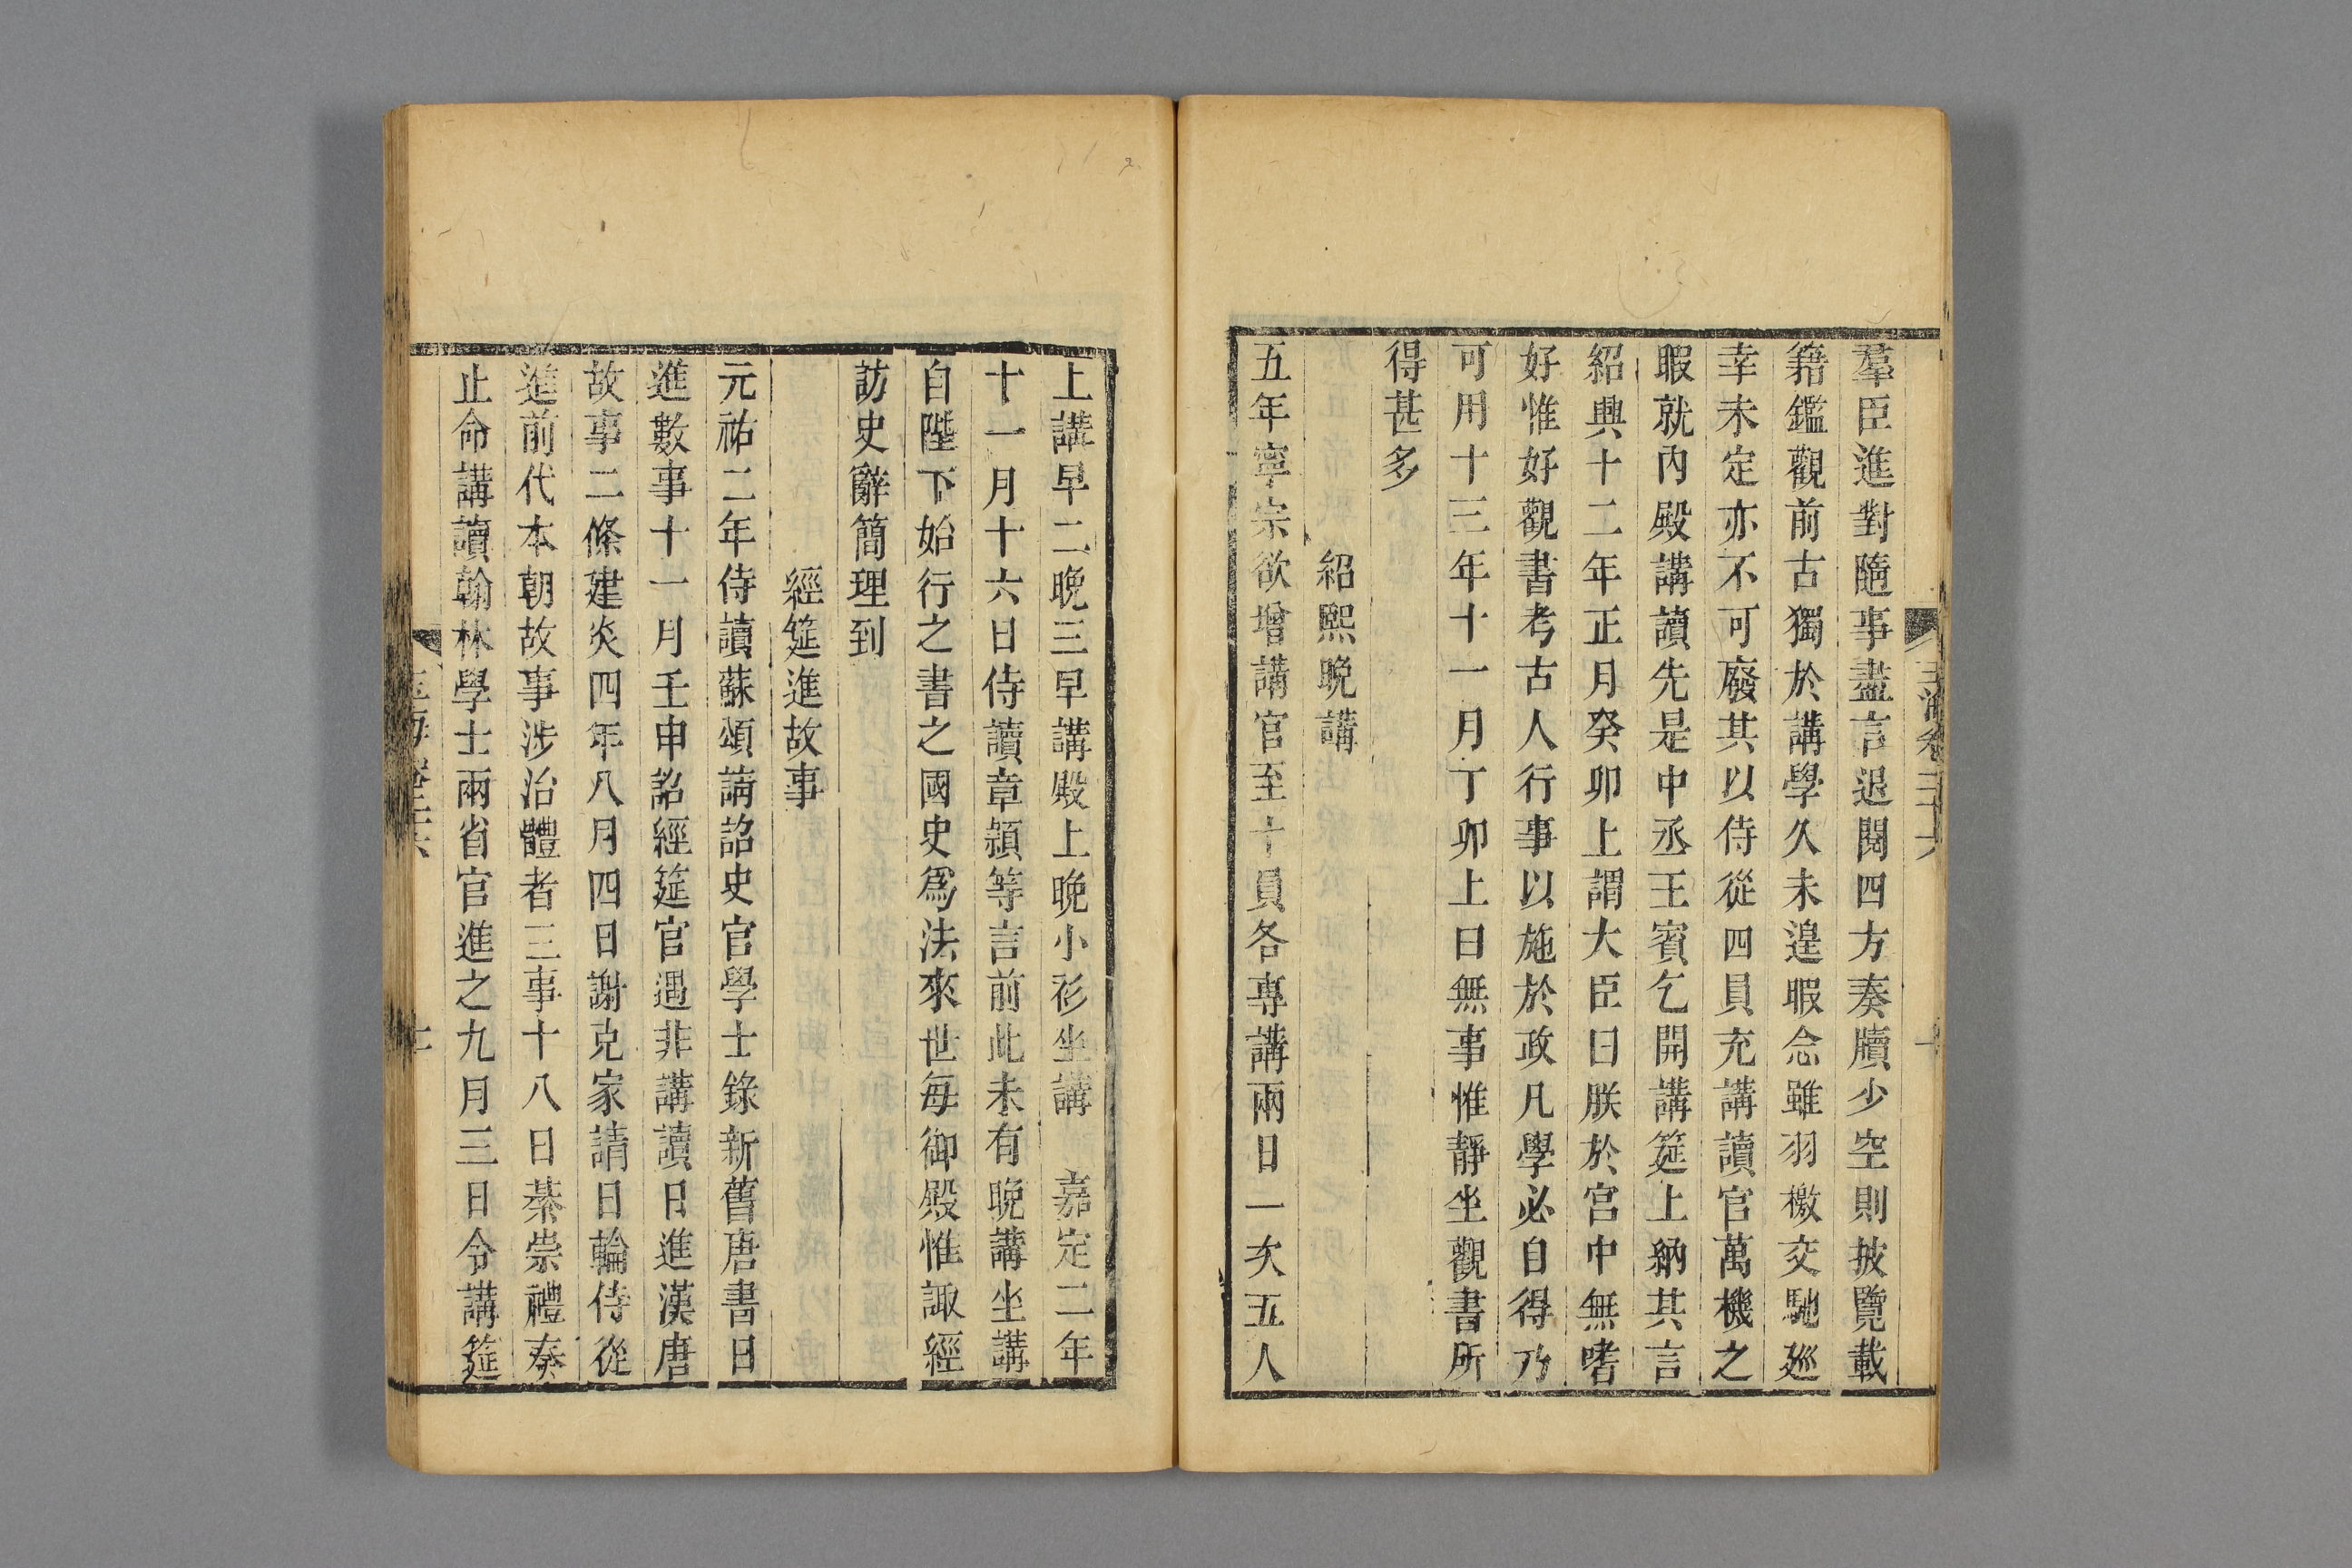 羣臣進對隨事盡言退閱四方奏牘少空則披覽載
籍鑑觀前古獨於講學久未遑暇念雖羽檄交馳廵
幸未定亦不可廢其以侍從四員充講讀官萬機之
暇就內殿講讀先是中丞王賓乞開講筵上納其言
紹興十二年正月癸卯上謂大臣曰朕於宫中無嗜
好惟好觀書考古人行事以施於政凡學必自得乃
可用十三年十一月丁卯上曰無事惟靜坐觀書所
得甚多
紹熙晚講
五年寧宗欲增講官至十員各專講兩日一次五人
上講早二晚三早講殿上晚小衫坐講 嘉定二年
十一月十六日侍讀章穎等言前此未有晚講坐講
自陛下始行之書之國史爲法來世每御殿惟諏經
訪史辭簡理到
經筵進故事
元祐二年侍讀蘇頌請詔史官學士錄新舊唐書日
進數事十一月壬申詔經筵官遇非講讀日進漢唐
故事二條建炎四年八月四日謝克家請日輪侍從
進前代本朝故事涉治體者三事十八日綦崇禮奏
止命講讀翰林學士兩省官進之九月三日令講筵